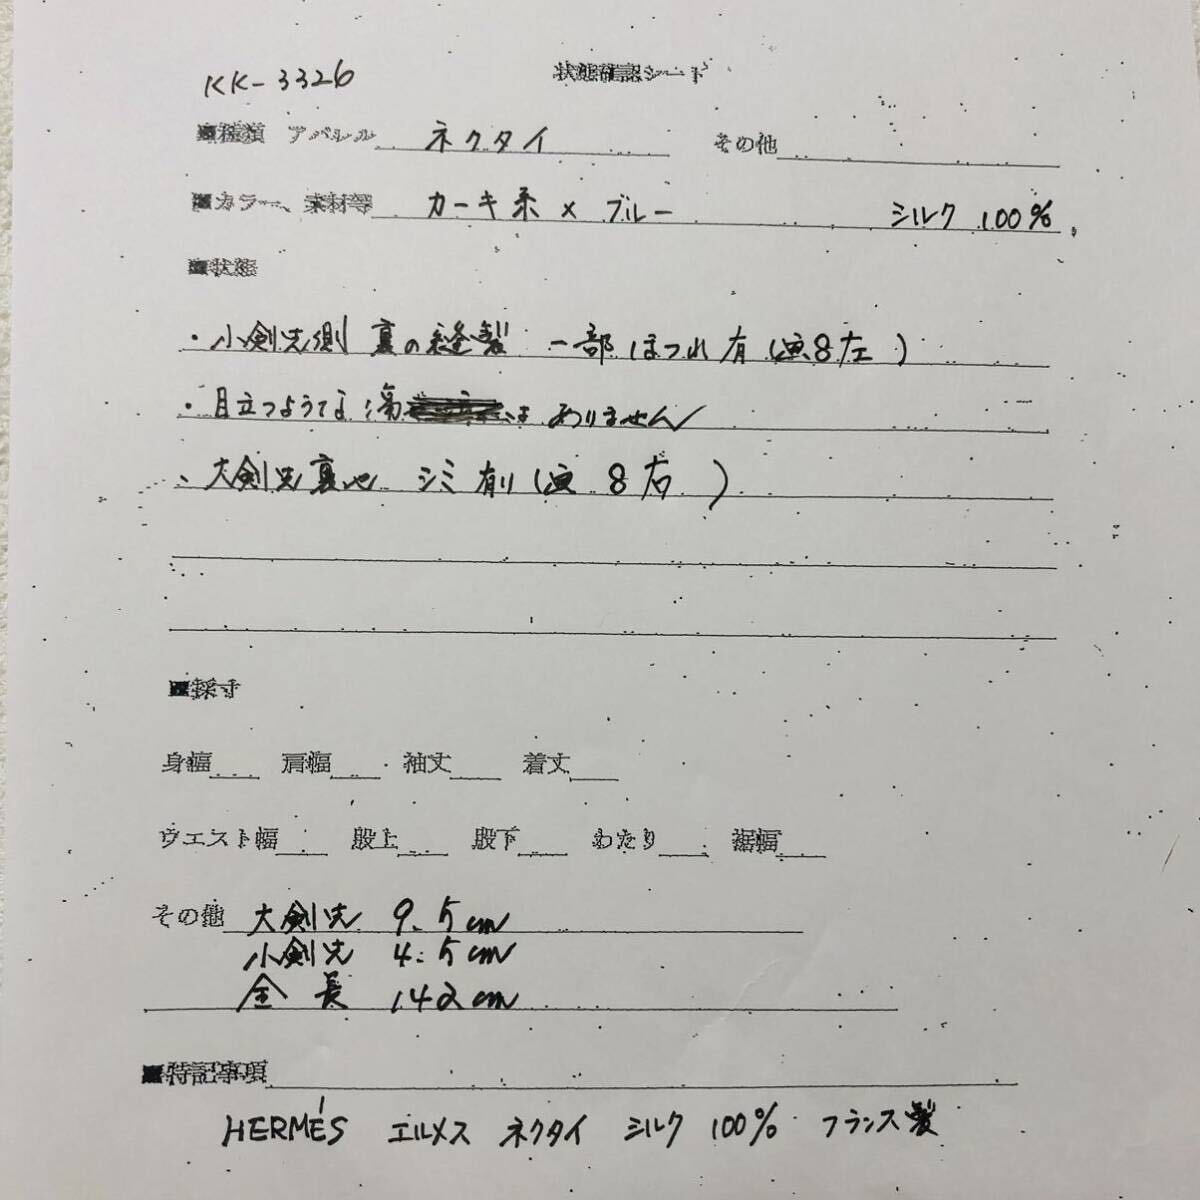 KK-3326
状態確認シート
■種類 アパレル ネクタイ その他
■カラー、素材等 カーキ系 × ブルー シルク 100%
■状態
・小剣先側 裏の縫製 一部ほつれ有(画8左)
・目立つような傷はありません
、大剣先裏地 シミ有り(画8右)
■採寸
身幅 肩幅 袖丈 着丈
ウエスト幅 股上 股下 わたり 裾幅
その他 大剣先 9.5cm
小剣先 4.5cm
全長 142cm
■特記事項
HERMÉS エルメス ネクタイ シルク 100% フランス製